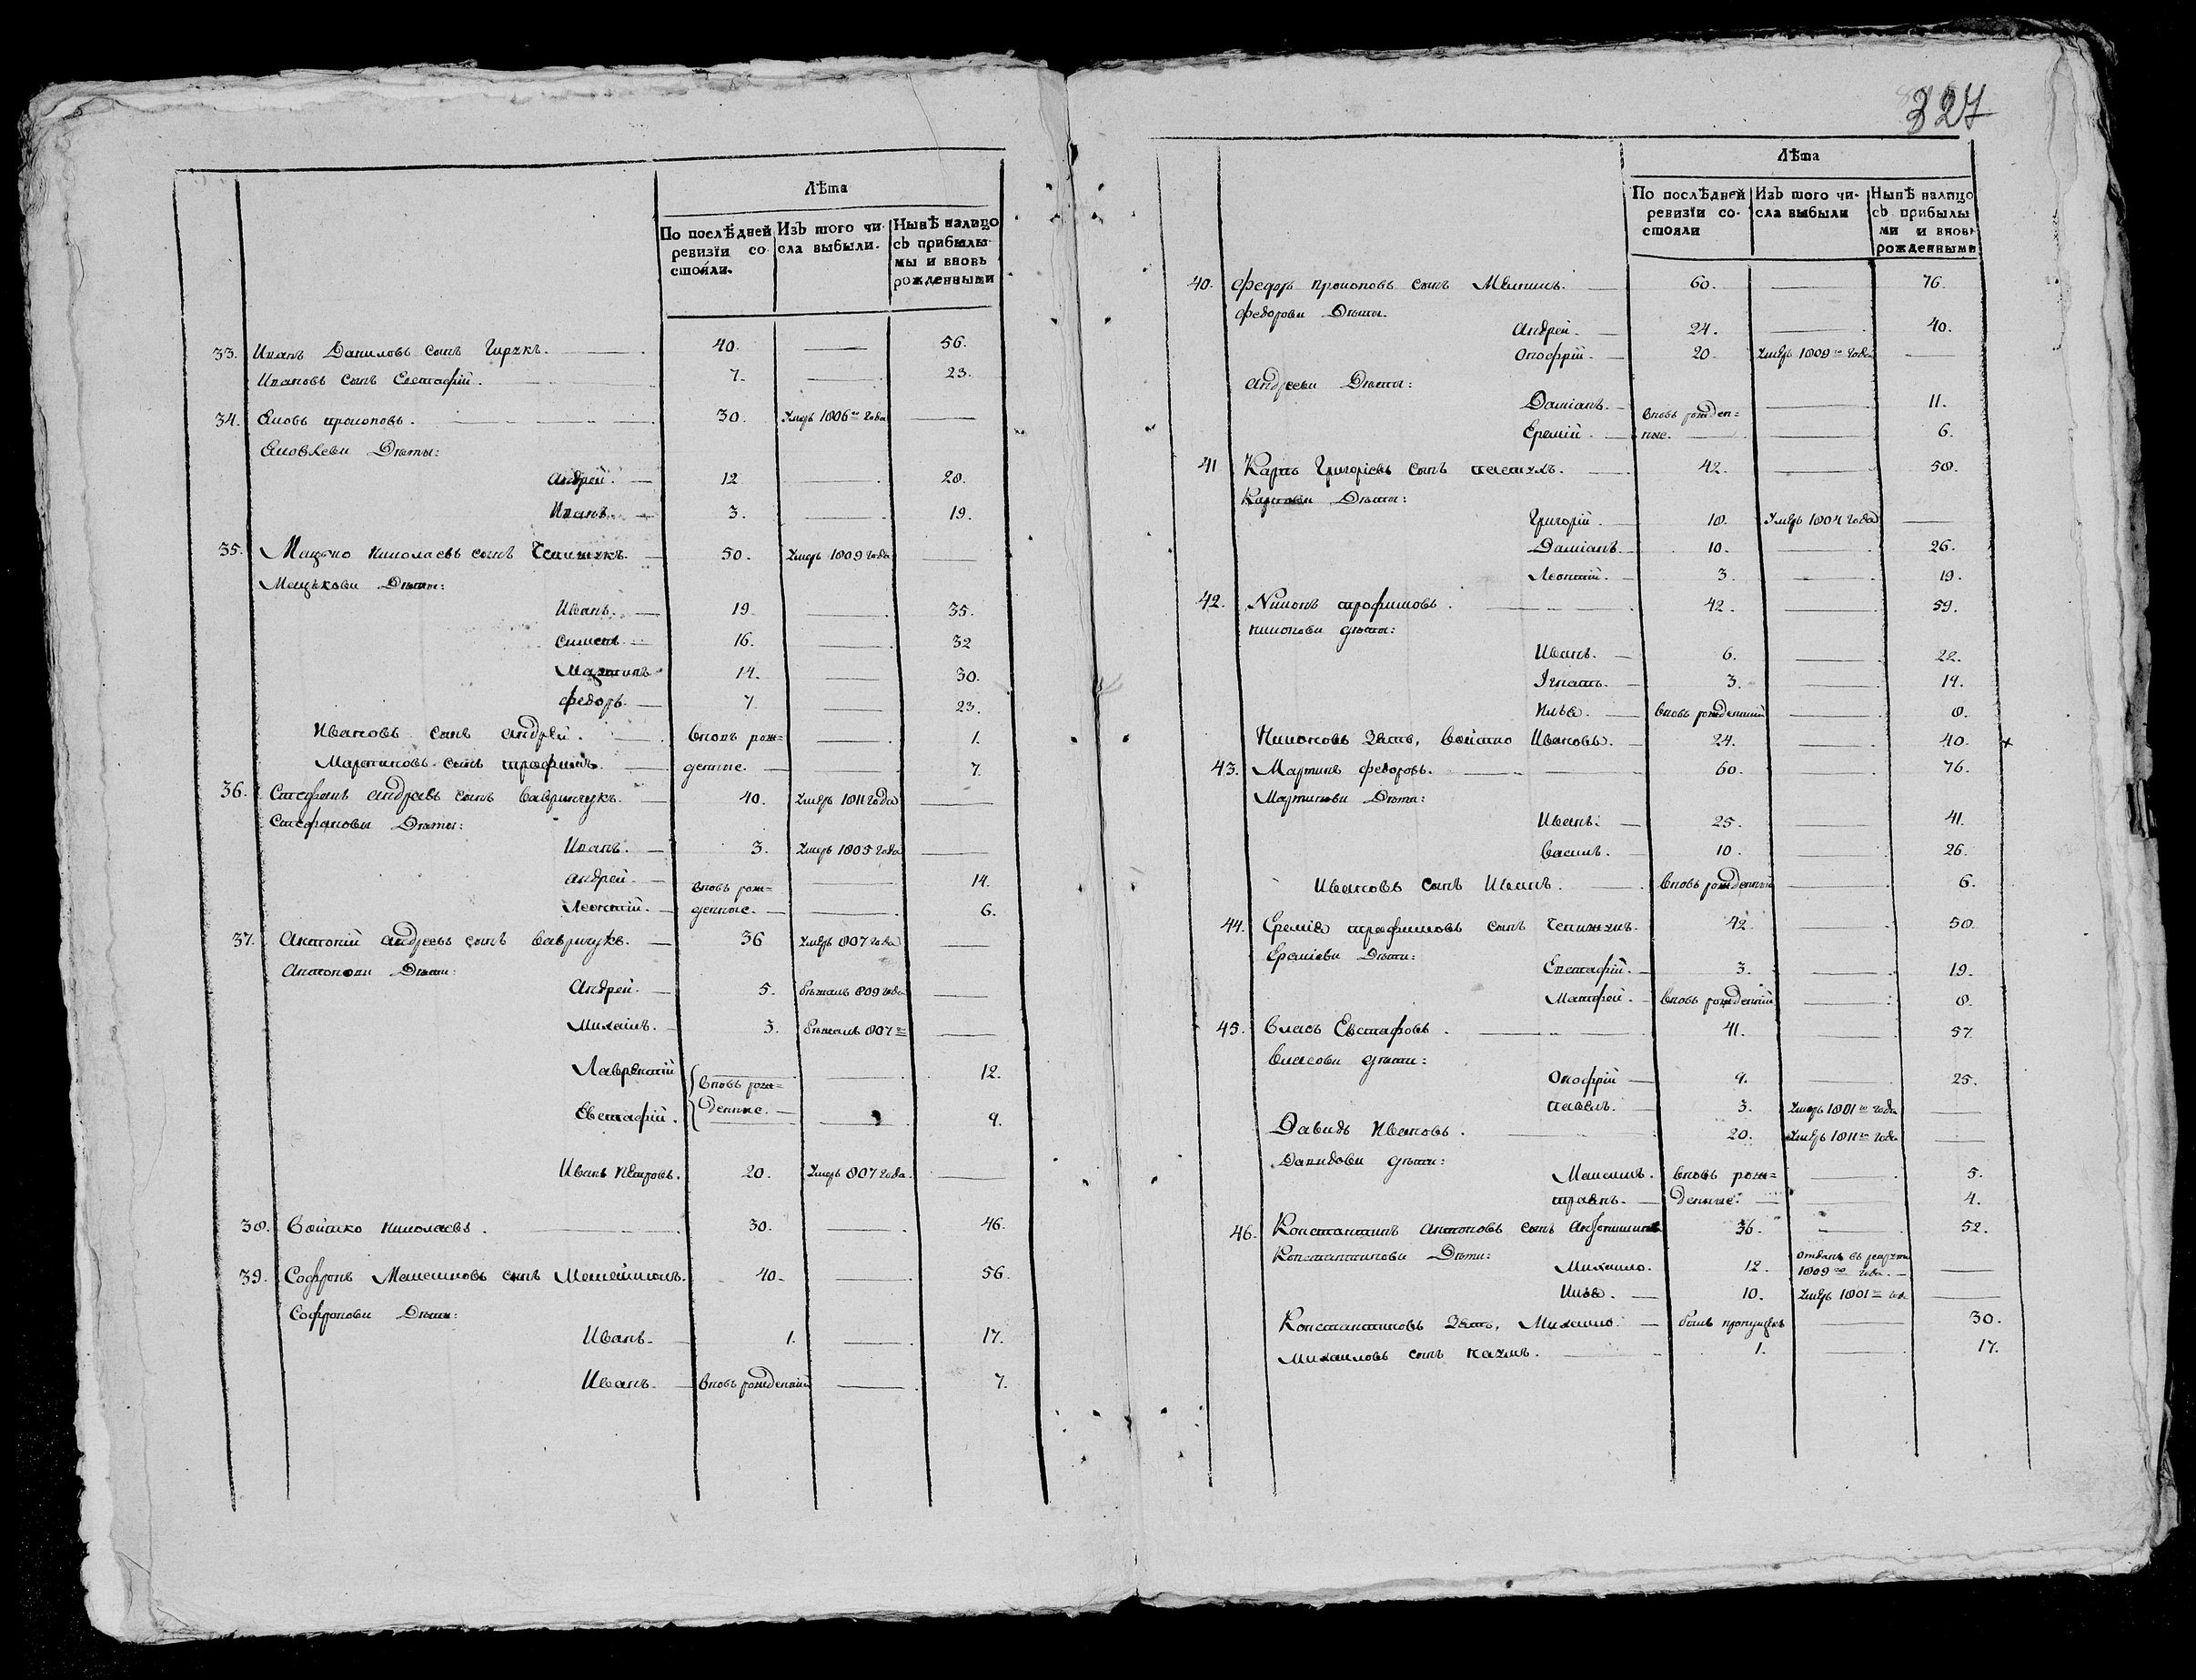 Лѣта
По послѣдней ревизїи состояли.
Изъ того числа выбыли.
Нынѣ налицо съ прибылымы и вновь рожденными
33. Иванъ Даниловъ сынъ 40. 56.
Ивановъ сынъ Евстафій. 7. 23.
34. Яковъ прокоповъ. 30. Умеръ 1806го года
Яковлеви Дѣты:
Андрей. 12 28.
Иванъ. 3. 19.
35. Мацько николаевъ сынъ 50. Умеръ 1809 года
Мацькови Дѣты:
Иванъ. 19 35.
Симеон. 16. 32
Мартинъ 14. 30.
федоръ. 7 23.
Ивановъ сынъ Андрей. вновь рож= 1.
Мартиновъ сынъ трофимъ. денные. 7.
36. Стефанъ андреевъ сынъ Вавринчукъ. 40. Умеръ 1811 года
Стефановы Дѣты:
Иванъ. 3. Умеръ 1805 года
Андрей. вновь рож= 14.
Леонтій. денные. 6.
37. Антоній андреевъ сынъ Вавринчукъ. 36 Умеръ 807 года
Антонови Дѣти:
Андрей. 5. бѣжалъ 809 года
Михаилъ. 3. бѣжалъ 807го
Лаврентій вновь рож= 12.
Евстафій. денные. 9.
Иванъ Петровъ. 20. Умеръ 807 года.
38. Войтко николаевъ. 30. 46.
39. Софронъ сынъ 40. 56.
Софронови Дѣти:
Иванъ. 1. 17.
Иванъ. вновь рожденній 7.
327
Лѣта
По послѣдней ревизїи состояли
Изъ того числа выбыли
Нынѣ налицо съ прибылыми и вновь рожденными
40. Федоръ прокоповъ сынъ 60. 76.
Федорови Дѣты.
Андрей. 24. 40.
Онофрій. 20 Умеръ 1809го года
Андрееви Дѣты:
Даміанъ. вновь рожден= 11.
Еремій. ные. 6.
41 Карпъ Григоріевъ сынъ пастухъ. 42. 58.
Карпови Дѣты:
Григорій. 18. Умеръ 1804 года
Даміанъ 10. 26.
Леонтій. 3. 19.
42. Никонъ трофимовъ. 42. 59.
никонови дѣты:
Иванъ. 6. 22.
Игнатъ. 3. 19.
Илья. вновь рожденній 8.
Никоновъ Зять, Войтко Ивановъ. 24. 40. x
43. Мартинъ федоровъ. 60. 76.
Мартинови Дѣти:
Иванъ. 25. 41.
Василь. 10. 26.
Ивановъ сынъ Иванъ. вновь рожденній 6.
44. Еремія трофимовъ сынъ 42 58.
Ереміеви Дѣти:
Евстафій. 3. 19.
Матфей. вновь рожденній 8.
45. Власъ Евстафовъ. 41. 57
Власови дѣти:
Онофрій 9. 25.
павелъ. 3. Умеръ 1801го года
Давидъ Ивановъ. 20. Умеръ 1811го года
Давидови дѣти:
вновь рож= 5.
денные. 4.
46. Константинъ Антоновъ сынъ 36. 52.
Константинови Дѣти:
Михайло. 12. отданъ въ рекруты 1809го года.
Илья. 10. Умеръ 1801го года
Константиновъ Зять, Михайло былъ пропущенъ 30.
Михайловъ сынъ 1. 17.